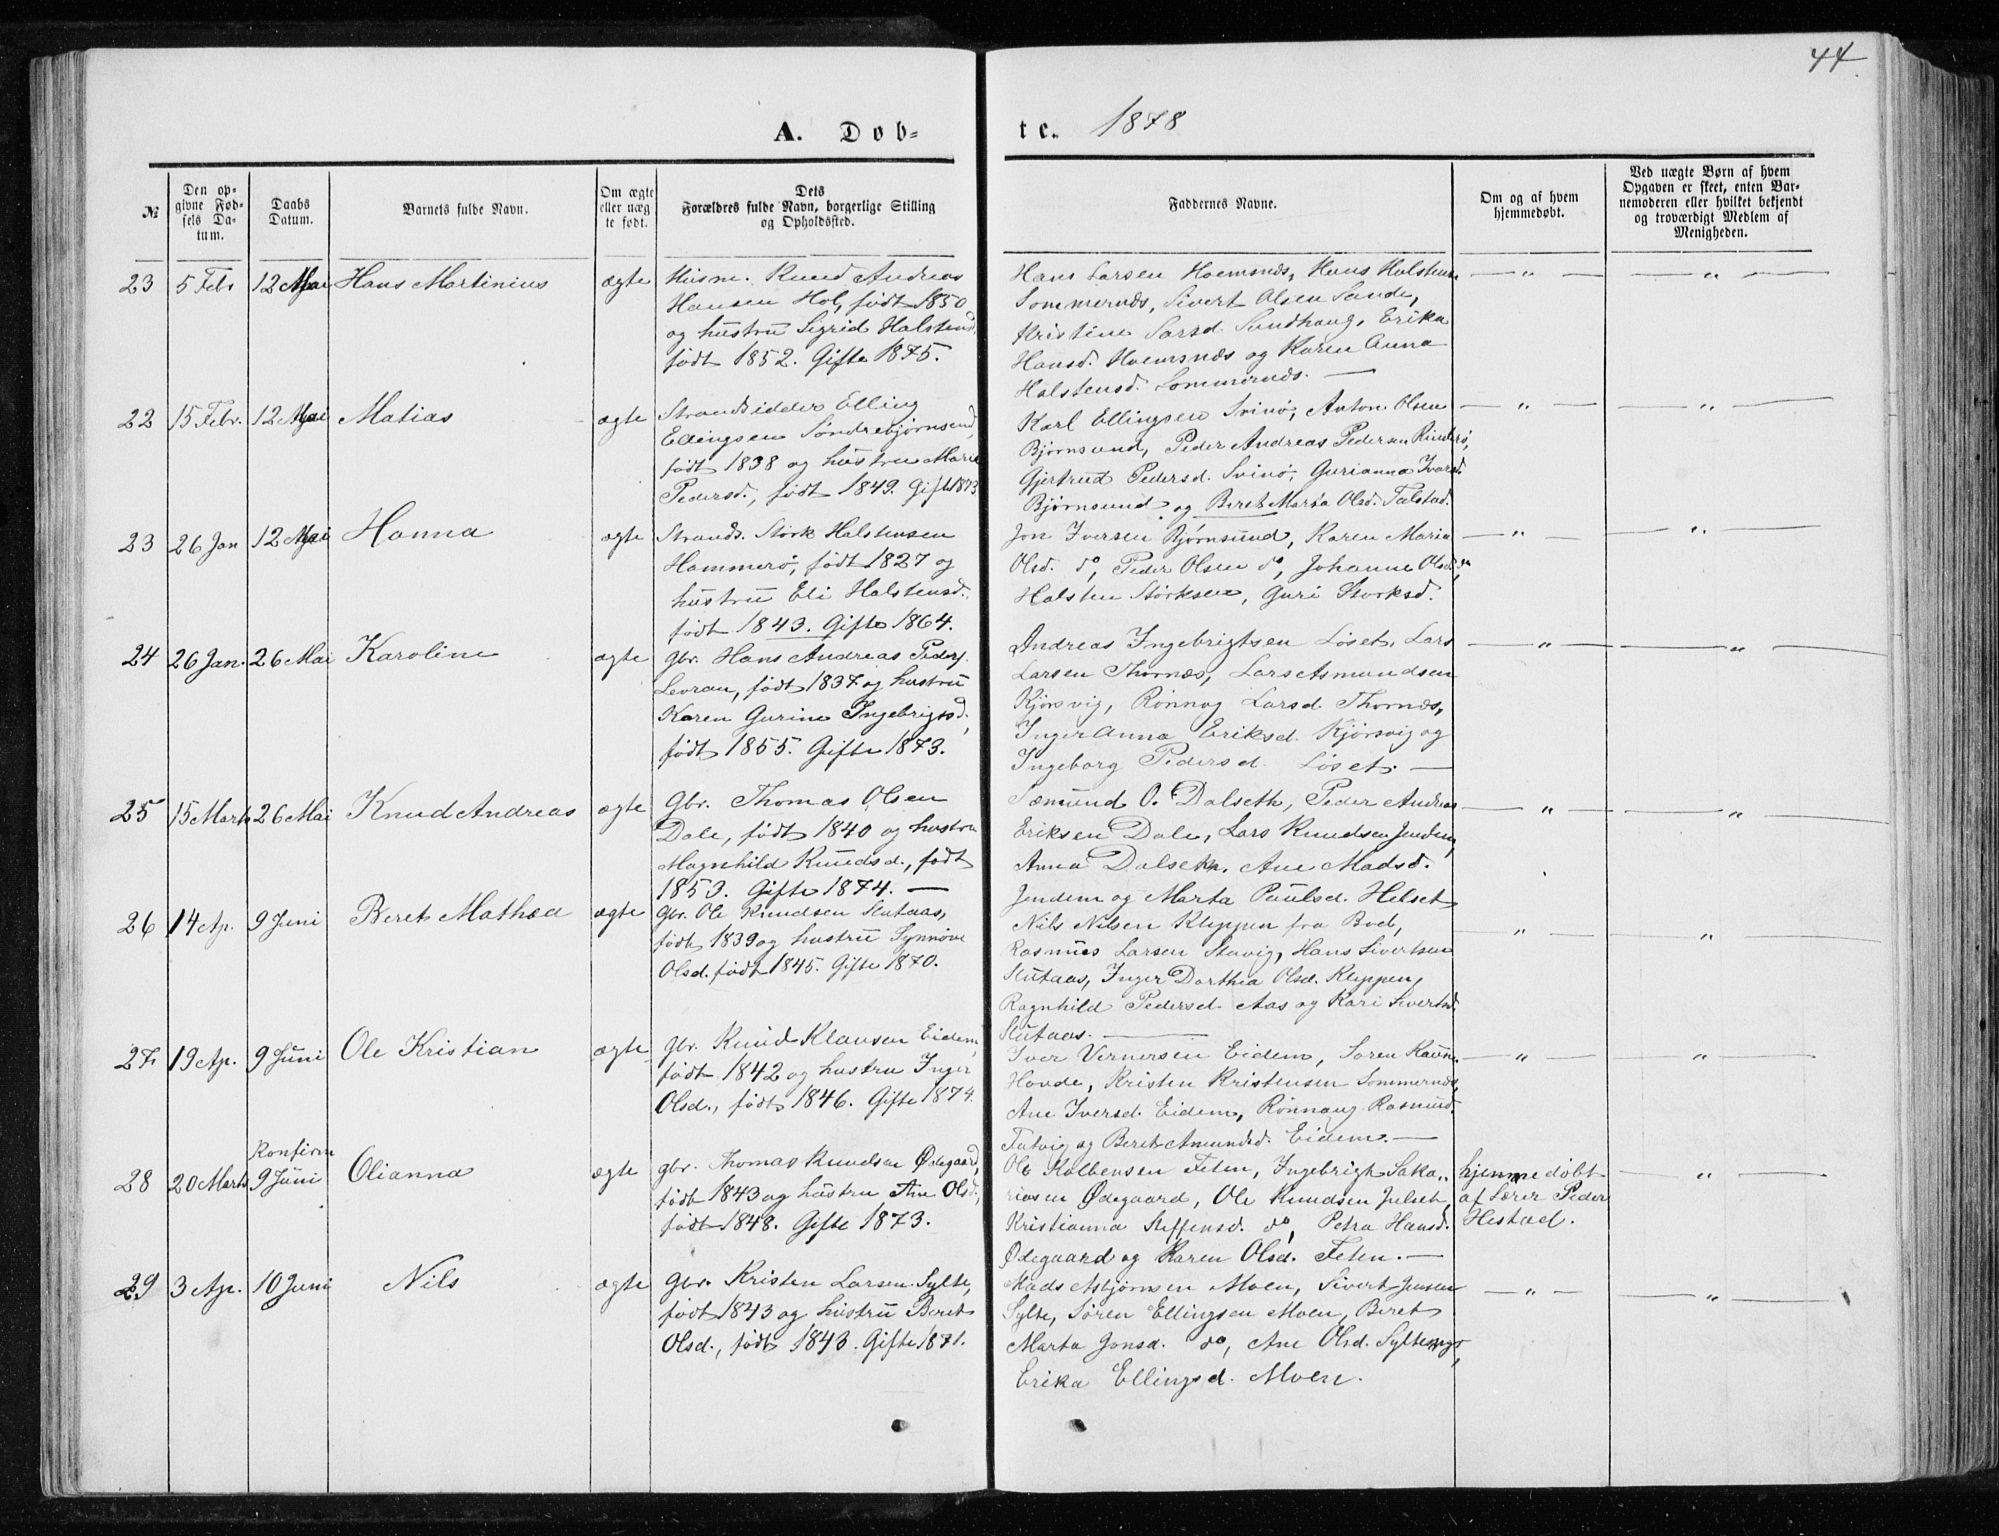 44.
A. Døb-
te. 1878
№
Den op-
givne Fød-
sels Da-
tum.
Daabs
Datum.
Barnets fulde Navn.
Om ægte
eller uæg
te født.
Dets
Forældres fulde Navn, borgerlige Stilling
og Opholdssted.
Faddernes Navne.
Om og af hvem
hjemmedøbt.
Ved uægte Børn af hvem
Opgaven er skeet, enten Bar-
nemoderen eller hvilket bekjendt
og troværdigt Medlem af
Menigheden.
23 5 Feb. 12 Mai Hans Martinius ægte
Husm. Knud Andreas
Hansen Hol, født 1850
og hustru Sigrid Halstensd.
født 1852. Gifte 1875.
Hans Larsen Hoemsnæs, Hans Halstens.
Sommernæs, Sivert Olsen Sande,
Kristine Larsd. Sundhaug, Erika
Hansd. Hoemsnæs og Karen Anna
Halstensd. Sommernæs. —
— „ — — „ —
22 15 Febr. 12 Mai Matias ægte
Strandsidder Elling
Ellingsen Søndrebjørnsund,
født 1838 og hustru Marit
Pedersd., født 1849. Gifte 1873
Karl Ellingsen Svinø, Anton Olsen
Bjørnsund, Peder Andreas Pedersen Rinderø,
Gjertrud Pedersd. Svinø, Gurianna Ivarsd.
Bjørnsund og Beret Marta Olsd. Talstad.
— „ — — „ —
23 26 Jan 12 Mai Hanna ægte
Strands. Størk Halstensen
Hammerø, født 1827 og
hustru Eli Halstensd.
født 1843. Gifte 1864.
Jon Iversen Bjørnsund, Karen Maria
Olsd. do, Peder Olsen do, Johanne Olsd. do
Halsten Størksen, Guri Storksd.
— „ — — „ —
24 26 Jan. 26 Mai Karoline ægte
Gbr. Hans Andreas Peders.
Levran, født 1837 og hustru
Karen Gurine Ingebrigtsd.,
født 1855. Gifte 1873.
Andreas Ingebrigtsen Løset, Lars
Larsen Thornæs, Lars Asmundsen
Kjørsvig, Rønnog Larsd. Thornæs,
Inger Anna Eriksd. Kjørsvig og
Ingeborg Pedersd. Løset. —
— „ — — „ —
25 15 Marts 26 Mai Knud Andreas ægte
Gbr. Thomas Olsen
Dale, født 1840 og hustru
Magnhild Knudsd., født
1853. Gifte 1874. —
Sæmund O. Dalseth, Peder Andreas
Eriksen Dale, Lars Knudsen Jendem,
Anna Dalseth, Ane Madsd.
Jendem og Marta Paulsd. Helset
— „ — — „ —
26 14 Ap. 9 Juni Beret Mathea ægte
Gbr. Ole Knudsen Slutaas,
født 1839 og hustru Synnøve
Olsd. født 1845. Gifte 1870.
Nils Nilsen Kleppen fra Bod,
Rasmus Larsen Stavig, Hans Sivertsen
Slutaas, Inger Dorthea Olsd. Kleppen,
Ragnhild Pedersd. Aas og Kari Sivertsd.
Slutaas. —
— „ — — „ —
27 19 Ap. 9 Juni Ole Kristian ægte
Gbr. Knud Klausen Eidem,
født 1842 og hustru Inger
Olsd., født 1846. Gifte 1874.
Iver Vernersen Eidem, Søren
Hovde, Kristen Kristensen Sommernæs,
Ane Iversd. Eidem, Rønnaug Rasmusd.
og Beret Amundsd. Eidem. —
— „ — — „ —
28 20 Marts Konfirm 9 Juni Olianna ægte
gbr. Thomas Knudsen Ødegaard,
født 1843 og hustru Ane Olsd.,
født 1848. Gifte 1873.
Ole Kolbensen Feten, Ingebrigt Saka„
riasen Ødegaard, Ole Knudsen Julset,
Kristianna Steffensd. do, Petra Hansd.
Ødegaard og Karen Olsd. Feten. —
hjemmedøbt
af Lærer Peder
Hestad.
— „ —
29 3 Ap. 10 Juni Nils ægte
Gbr. Kristen Larsen Sylte,
født 1843 og hustru Beret
Olsd., født 1843. Gifte 1871.
Mads Asbjørnsen Moen, Sivert Jensen
Sylte, Søren Ellingsen Moen, Beret
Marta Jonsd. do, Ane Olsd. Sylte og
Erika Ellingsd. Moen.
— „ — — „ —